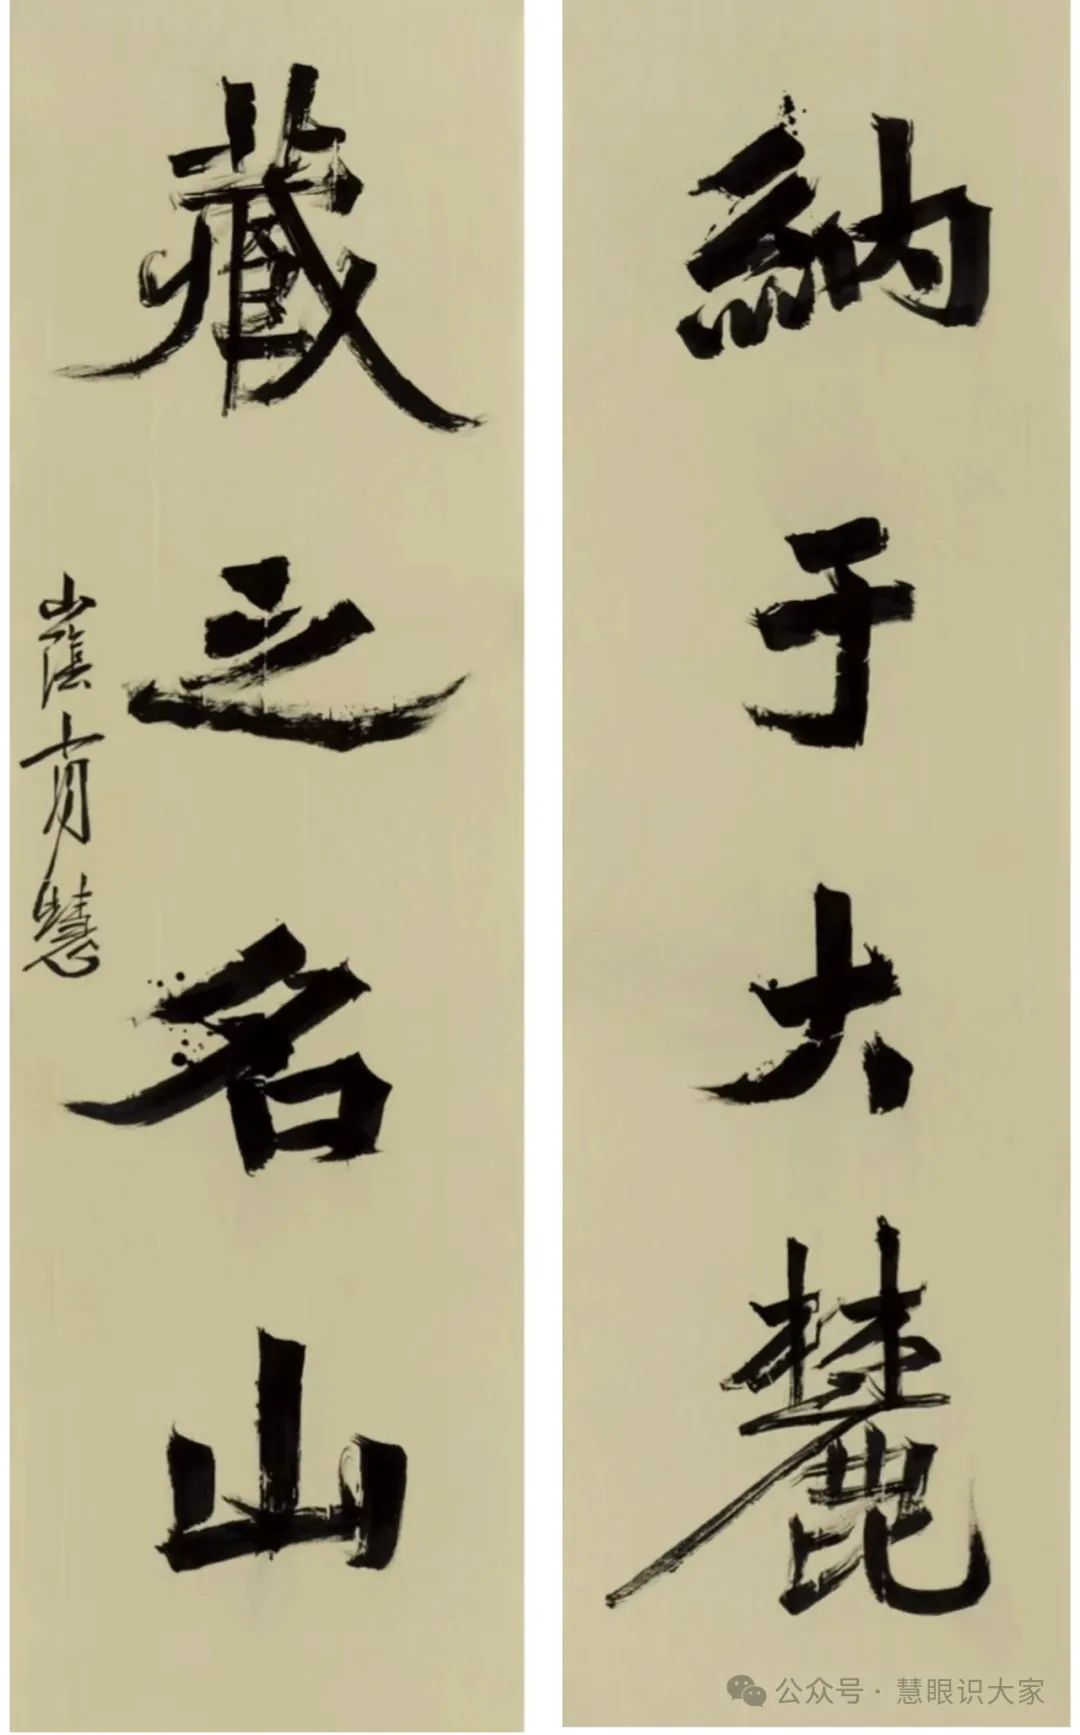 納于大麓
藏之名山
山陰肖慧
公众号·慧眼识大家